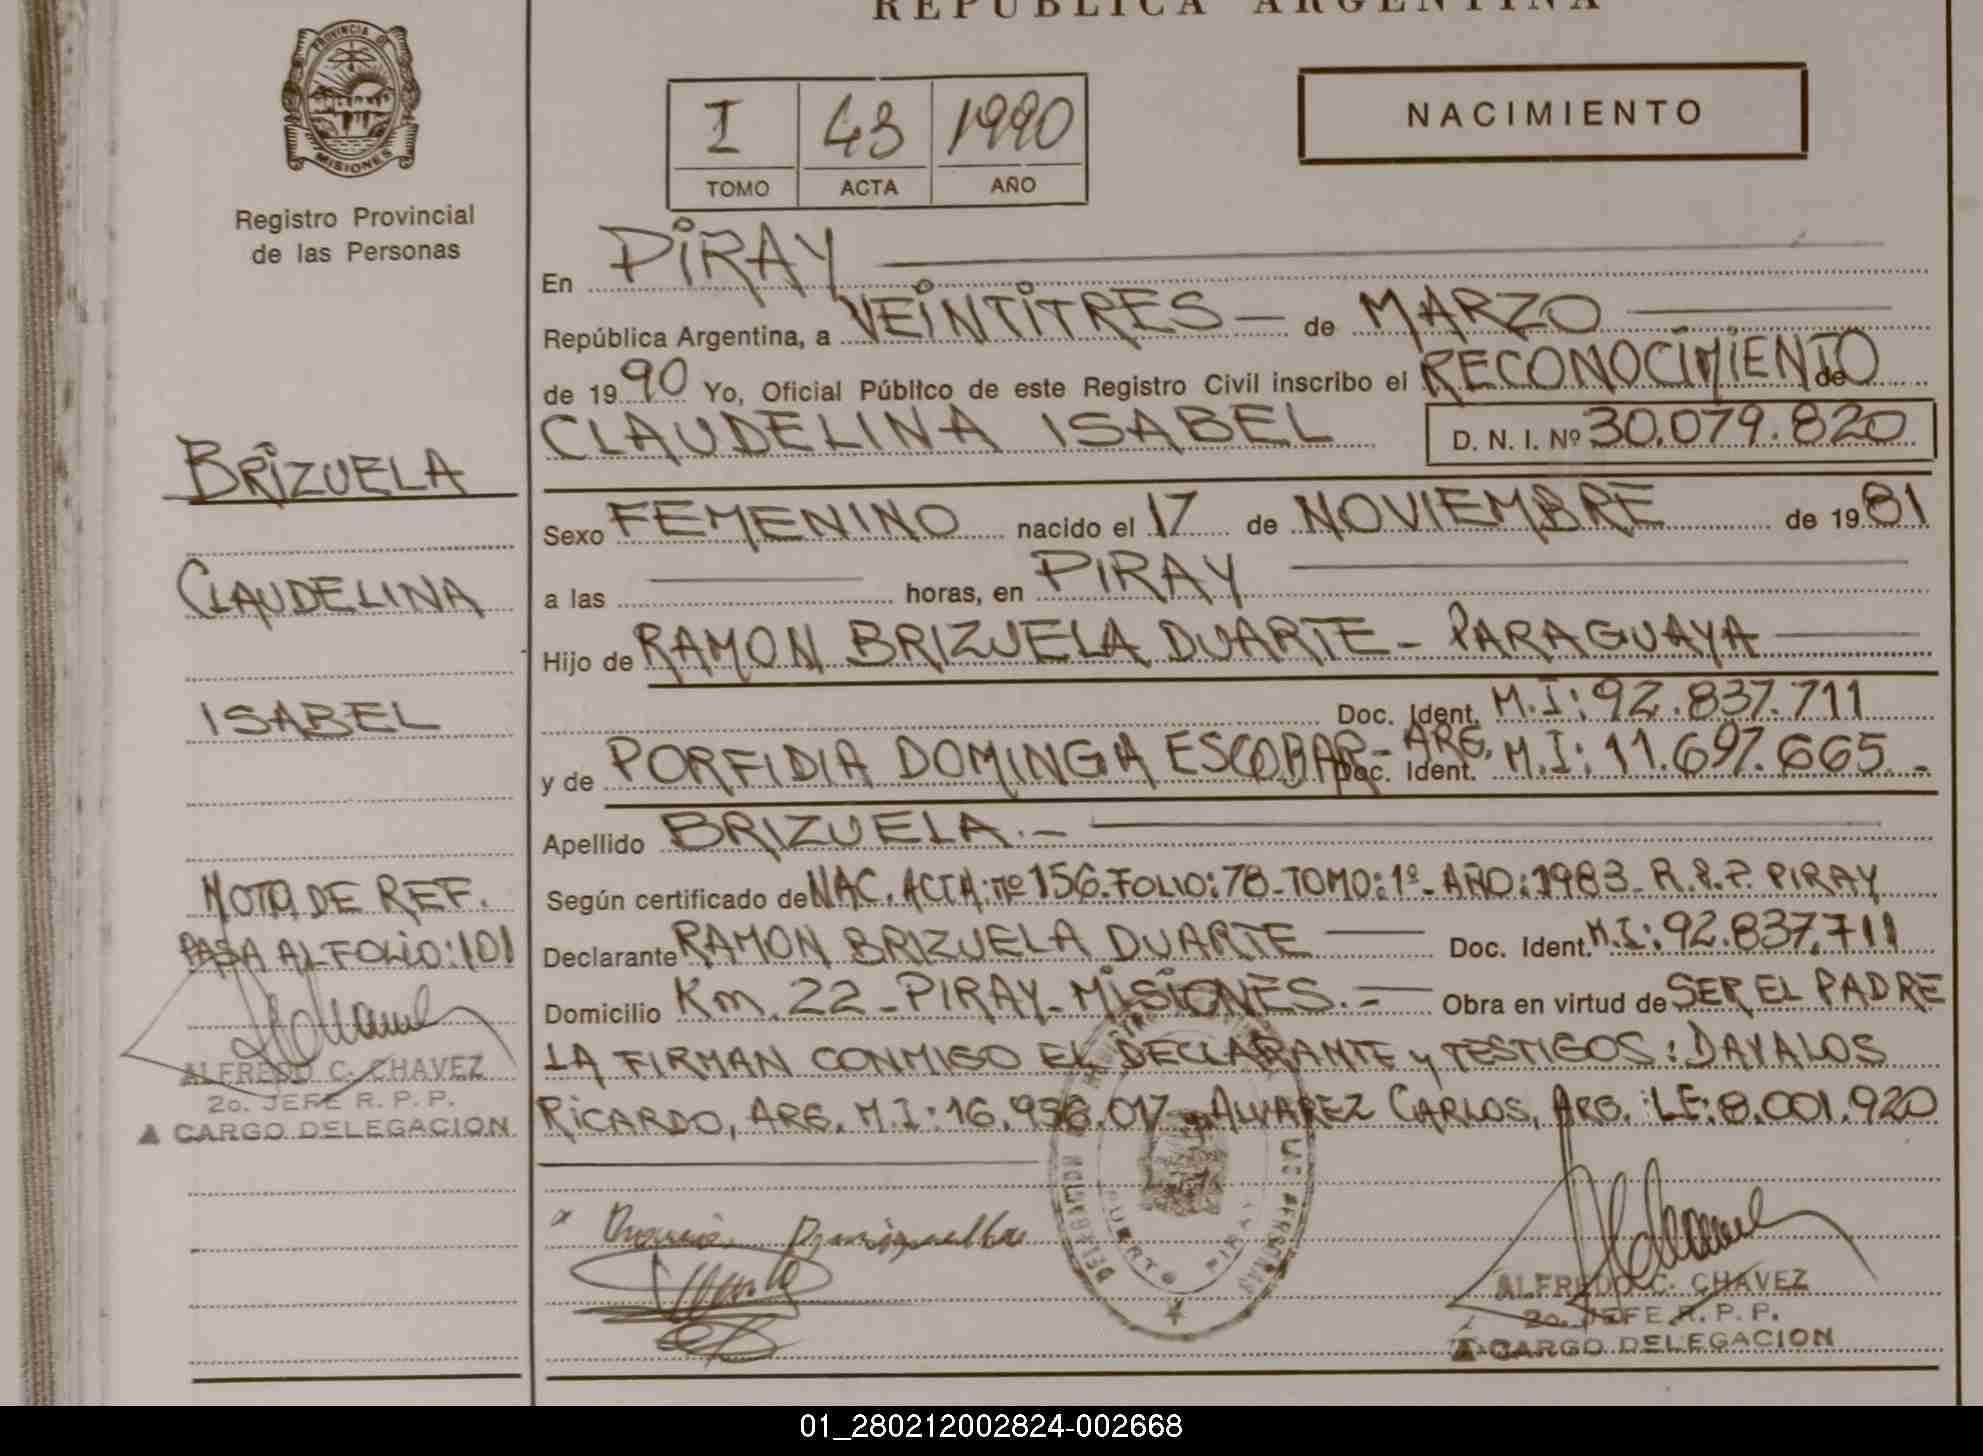 REPUBLICA ARGENTINA
PROVINCIA DE
MISIONES
Registro Provincial
de las Personas
I 43 1990
TOMO ACTA AÑO
NACIMIENTO
En PIRAY
República Argentina, a VEINTITRES de MARZO
de 1990 Yo, Oficial Público de este Registro Civil inscribo el RECONOCIMIENTO de
CLAUDELINA ISABEL D. N. I. Nº 30.079.820
Sexo FEMENINO nacido el 17 de NOVIEMBRE de 1981
a las horas, en PIRAY
Hijo de RAMON BRIZUELA DUARTE - PARAGUAYA
Doc. Ident. M.I: 92.837.711
y de PORFIDIA DOMINGA ESCOBAR - ARG. Doc. Ident. M.I: 11.697.665.-
Apellido BRIZUELA.-
Según certificado de NAC. ACTA: nº 156-FOLIO: 78-TOMO: 1º-AÑO: 1983-R.P.P. PIRAY
Declarante RAMON BRIZUELA DUARTE Doc. Ident. M.I: 92.837.711
Domicilio Km. 22-PIRAY-MISIONES.- Obra en virtud de SER EL PADRE
LA FIRMAN CONMIGO EL DECLARANTE y TESTIGOS: DAVALOS
RICARDO, ARG. M.I: 16.958.017 y ALVAREZ CARLOS, ARG. LE: 8.001.920
BRIZUELA
CLAUDELINA
ISABEL
NOTA DE REF.
PASA AL FOLIO: 101
ALFREDO C. CHAVEZ
2o. JEFE R. P. P.
A CARGO DELEGACION
DELEGACION
LAS PERSONAS
PUERTO PIRAY
ALFREDO C. CHAVEZ
2o. JEFE R. P. P.
A CARGO DELEGACION
01_280212002824-002668